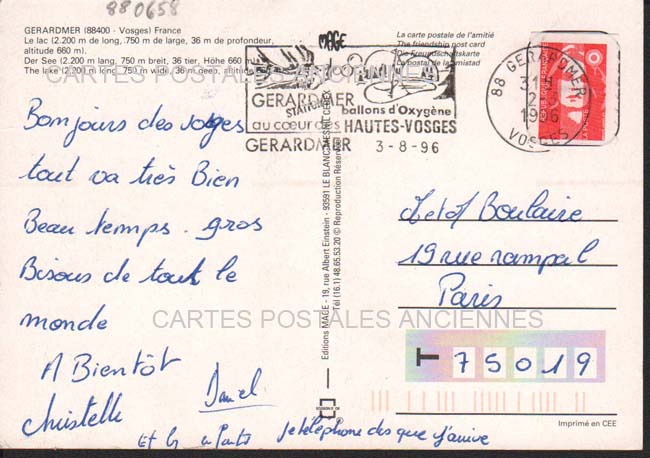 880658
GERARDMER (88400 - Vosges) France
Le lac (2.200 m de long, .750 m de large, 36 m de profondeur,
altitude 660 m).
Der See (2.200 m lang, 750 m breit, 36 tier, Höhe 660 m)
The lake (2.200 m long, 750 m wide, 36 m deep, altitude
La carte postale de l'amitié
The friendship post card
Die Freundschaftskarte
La postal de la amistad
MAGE
GERARDMER
STATION
ballons d'Oxygène
au cœur des HAUTES-VOSGES
GERARDMER 3-8-96
88 GERARDMER
1996
VOSGES
CARTES POSTALES ANCIENNES
Bonjours des vosges
tout va très Bien
Beau temps. gros
Bisous de tout le
monde
A Bientôt
Christelle
Daniel
Et les
je téléphone des que j'arrive
Editions MAGE - 19, rue Albert Einstein - 93591 LE BLANC MESNIL CEDEX
Tél (16.1) 48.65.53.20 © Reproduction Réservée
Boulaire
19 rue rampal
Paris
CARTES POSTALES ANCIENNES
T 75019
Imprimé en CEE